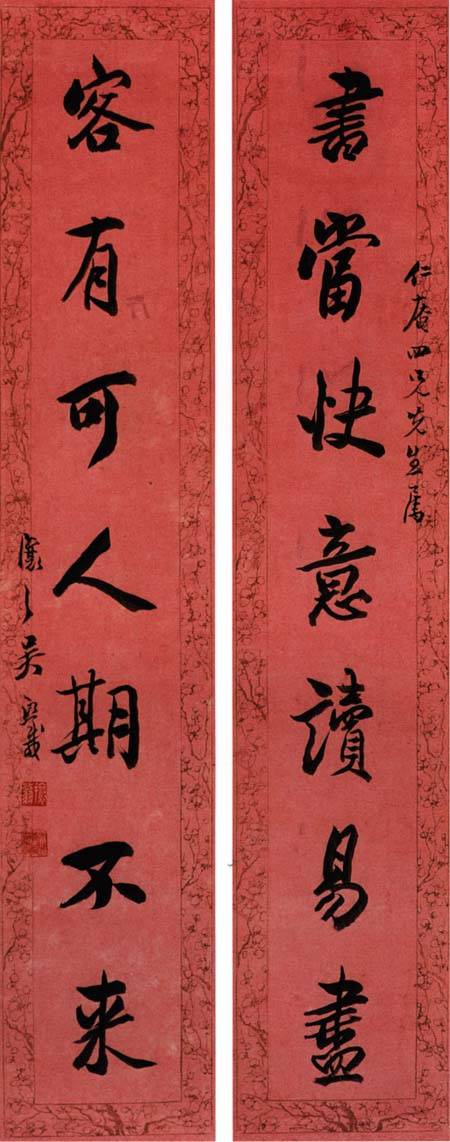 書當快意讀易盡
仁菴四兄先生属
客有可人期不来
讓之吳熙載